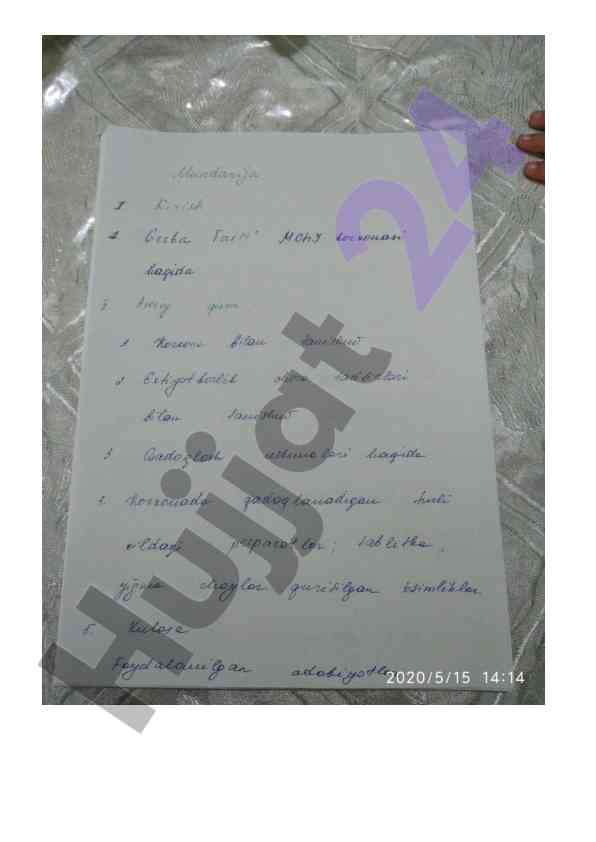 Mundarija
I Kirish
2. Gerba Farm" MCHJ korxonasi
haqida
3. Asosiy qism
1 Korxona bilan tanishuv
2. Extiyotkorlik chora tadbirlari
bilan tanishuv
3 Qadoqlash uskunalari haqida
4. Korxonada qadoqlanadigan turli
xildagi preparatlar; tabletka,
yig'ma choylar quritilgan o'simliklar
5. Xulosa
Foydalanilgan adabiyotlar
2020/5/15 14:14
Hujjat 24